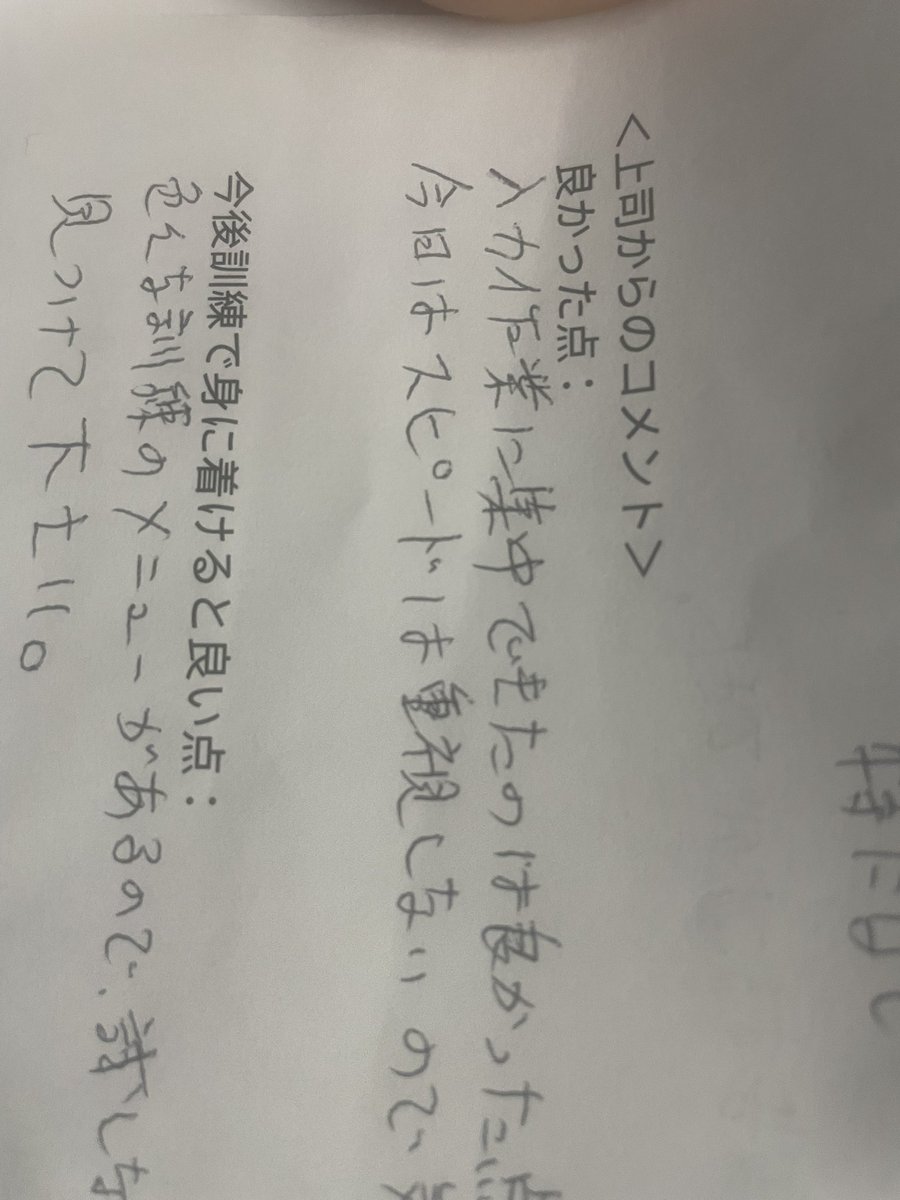 特になし
<上司からのコメント>
良かった点：
入力作業に集中できたのは良かった点
今日はスピードは重視しないので、
今後訓練で身に着けると良い点：
色んな訓練のメニューがあるので、試しな
見つけて下さい。